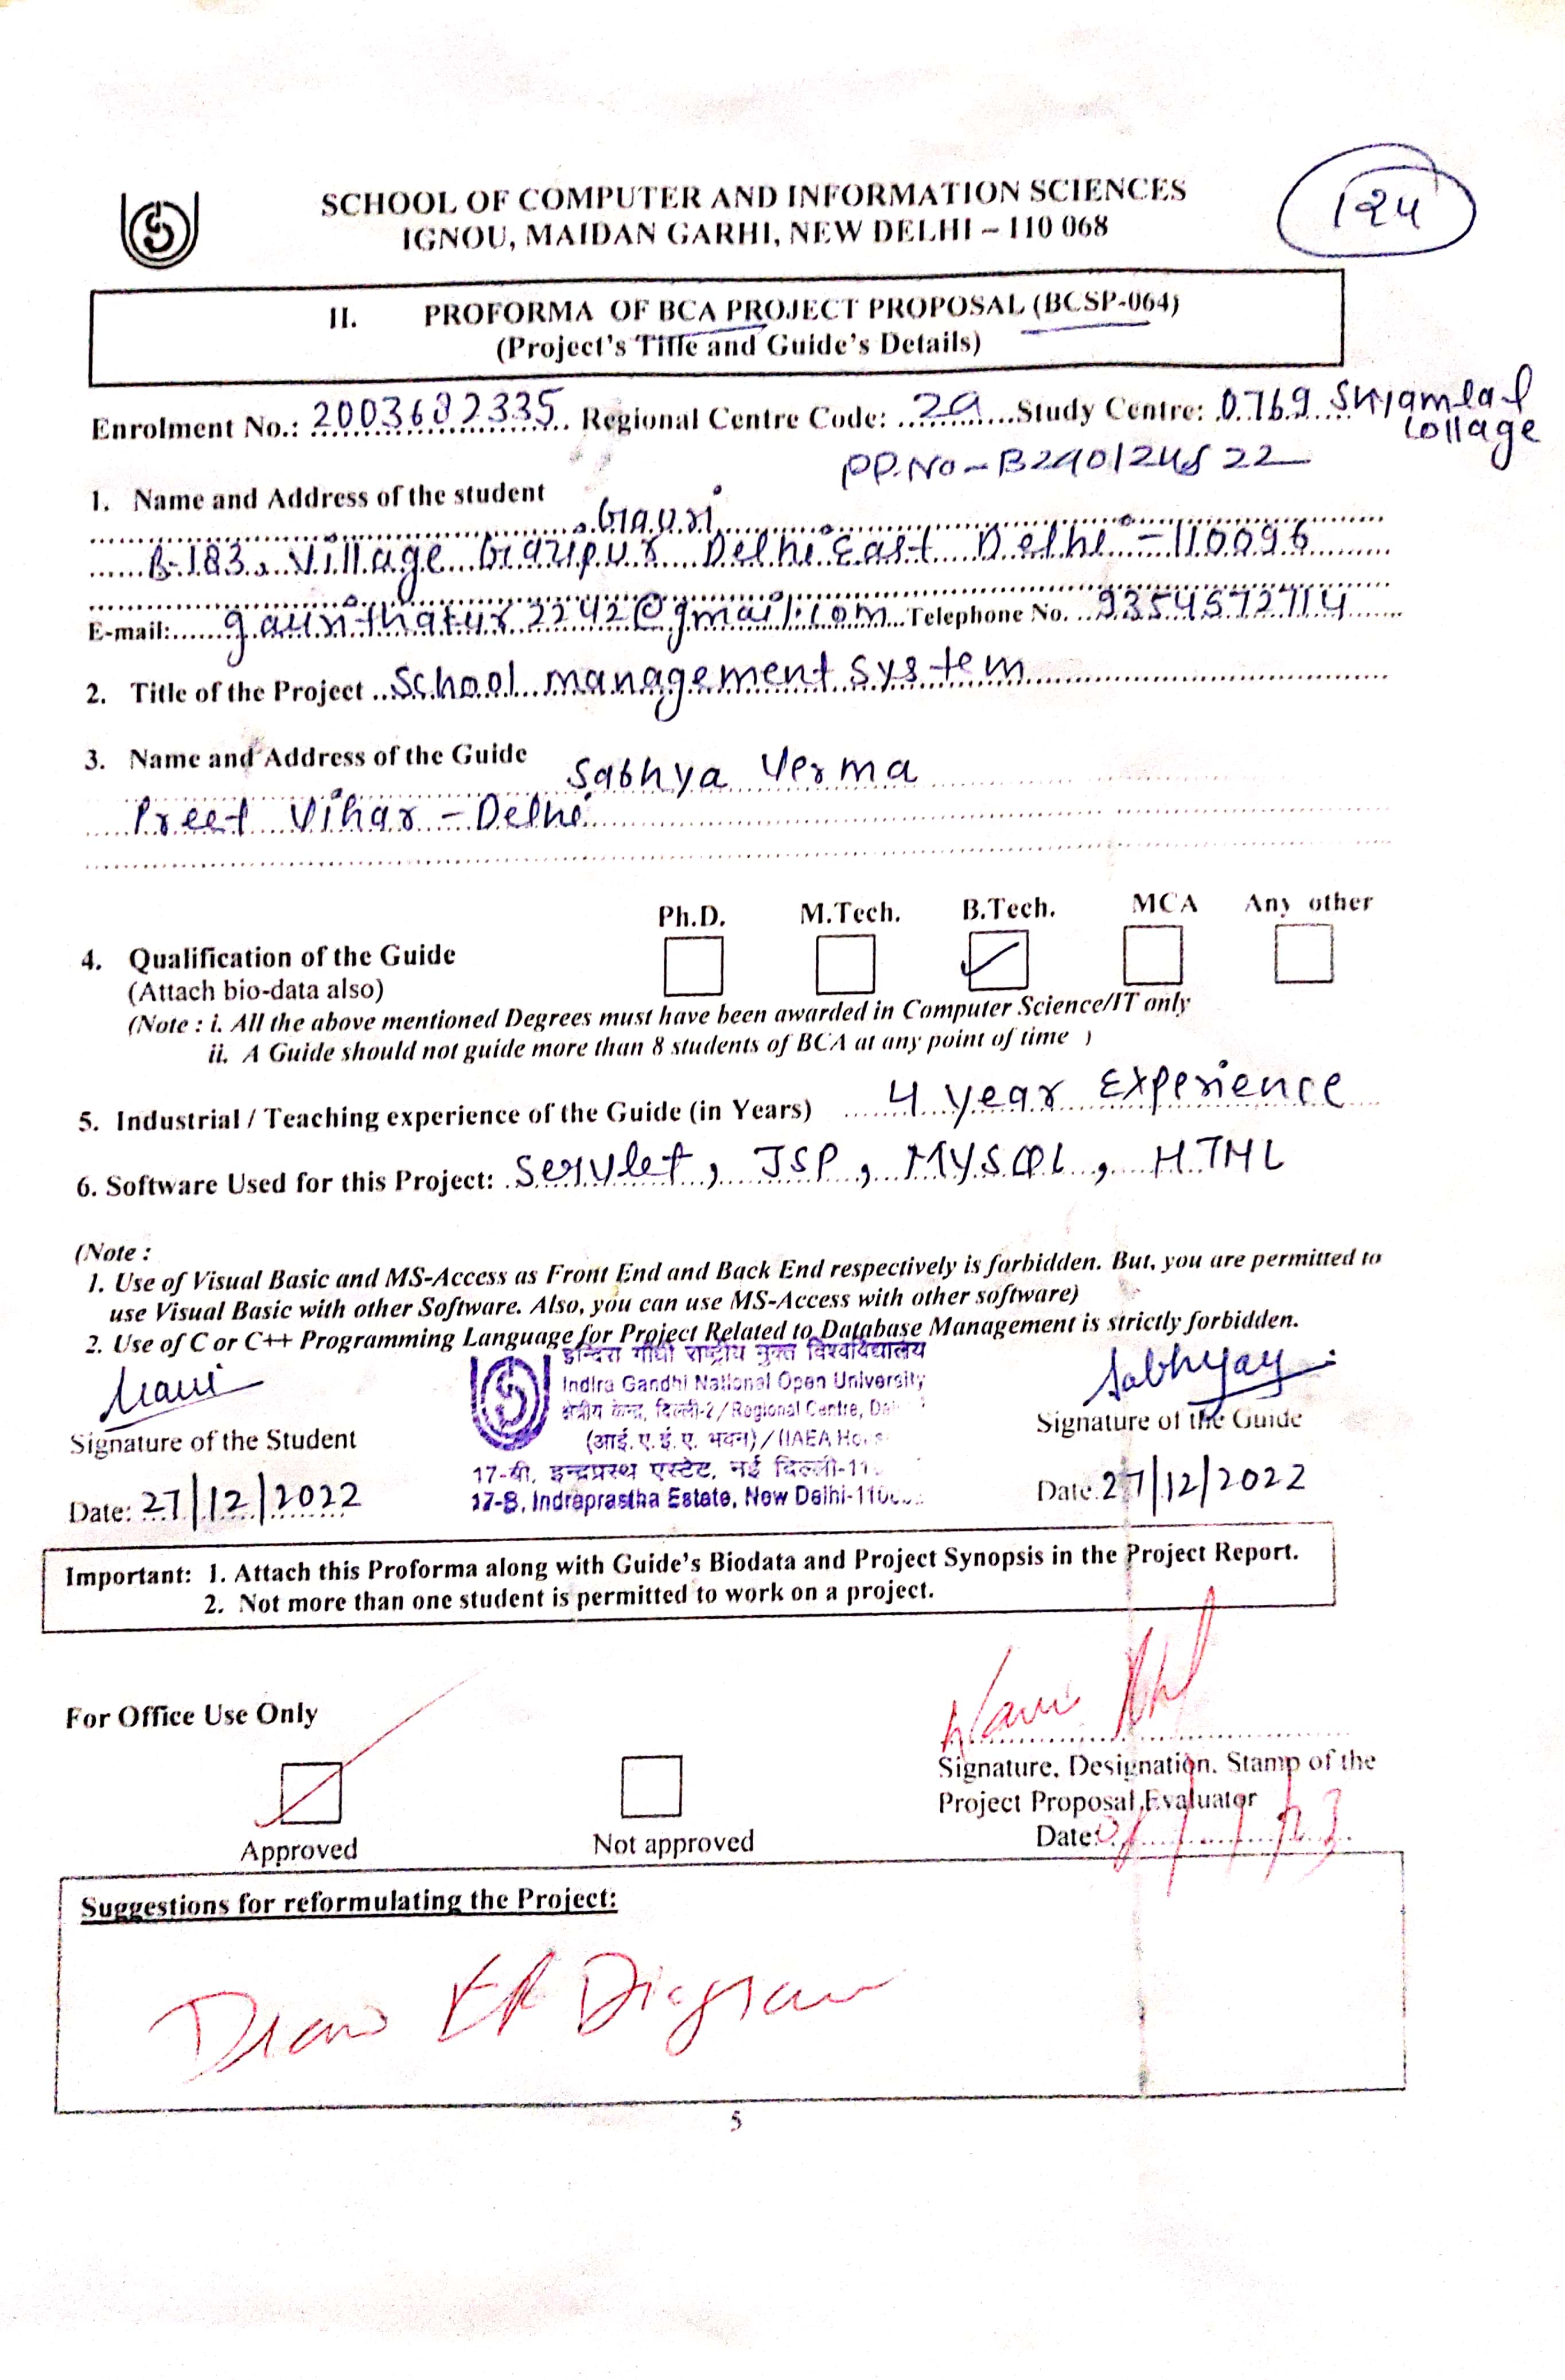 SCHOOL OF COMPUTER AND INFORMATION SCIENCES
IGNOU, MAIDAN GARHI, NEW DELHI – 110 068
124
II. PROFORMA OF BCA PROJECT PROPOSAL (BCSP-064)
(Project's Title and Guide's Details)
Enrolment No.: 2003682335 Regional Centre Code: 29 Study Centre: 0769 Shyamlal
Collage
PP.No-
1. Name and Address of the student
Gauri
B-183, Village Gazipur Delhi East Delhi - 110096
E-mail: gaurithakur2242@gmail.com Telephone No. 9354572714
2. Title of the Project School management system
3. Name and Address of the Guide
Sabhya Verma
Preet Vihar - Delhi
Ph.D. M.Tech. B.Tech. MCA Any other
4. Qualification of the Guide
(Attach bio-data also)
(Note : i. All the above mentioned Degrees must have been awarded in Computer Science/IT only
ii. A Guide should not guide more than 8 students of BCA at any point of time )
5. Industrial / Teaching experience of the Guide (in Years) 4 year Experience
6. Software Used for this Project: Servlet, JSP, MYSQL, HTML
(Note :
1. Use of Visual Basic and MS-Access as Front End and Back End respectively is forbidden. But, you are permitted to
use Visual Basic with other Software. Also, you can use MS-Access with other software)
2. Use of C or C++ Programming Language for Project Related to Database Management is strictly forbidden.
इन्दिरा गाँधी राष्ट्रीय मुक्त विश्वविद्यालय
Indira Gandhi National Open University
क्षेत्रीय केन्द्र, दिल्ली-2/Regional Centre,
(आई.ए.ई.ए. भवन)/(IAEA
17-बी, इन्द्रप्रस्थ एस्टेट, नई दिल्ली-
17-B, Indraprastha Estate, New Delhi-
Gauri
Signature of the Student
Date: 27/12/2022
Sabhyay
Signature of the Guide
Date. 27/12/2022
Important: 1. Attach this Proforma along with Guide's Biodata and Project Synopsis in the Project Report.
2. Not more than one student is permitted to work on a project.
For Office Use Only
Approved
Not approved
Signature, Designation, Stamp of the
Project Proposal Evaluator
Date:
Suggestions for reformulating the Project:
Draw ER Diagram
5